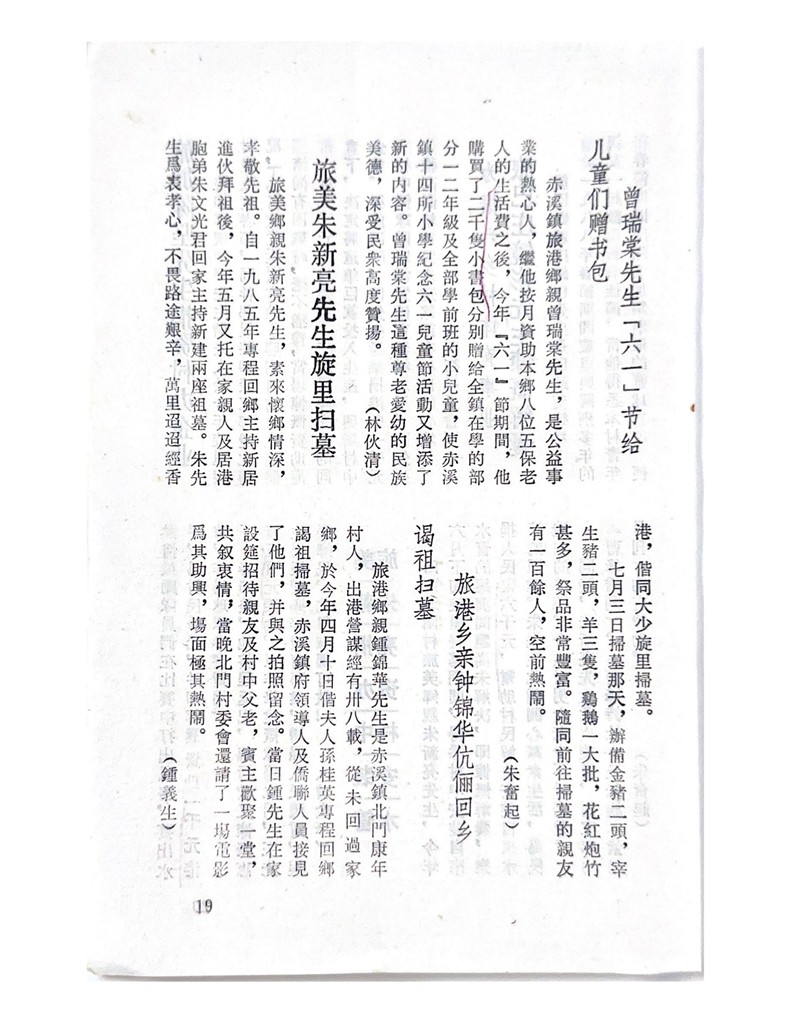 曾瑞棠先生「六一」节给
儿童们赠书包
赤溪鎮旅港鄉親曾瑞棠先生，是公益事
業的熱心人，繼他按月資助本鄉八位五保老
人的生活費之後，今年『六一』節期間，他
購買了二千隻小書包分別贈給全鎮在學的部
分一二年級及全部學前班的小兒童，使赤溪
鎮十四所小學紀念六一兒童節活動又增添了
新的內容。曾瑞棠先生這種尊老愛幼的民族
美德，深受民衆高度贊揚。（林伙清）
旅美朱新亮先生旋里扫墓
旅美鄉親朱新亮先生，素來懷鄉情深，
孝敬先祖。自一九八五年專程回鄉主持新居
進伙拜祖後，今年五月又托在家親人及居港
胞弟朱文光君回家主持新建兩座祖墓。朱先
生爲表孝心，不畏路途艱辛，萬里迢迢經香
港，偕同大少旋里掃墓。
七月三日掃墓那天，辦備金豬二頭，宰
生豬二頭，羊三隻，鷄鵝一大批，花紅炮竹
甚多，祭品非常豐富。隨同前往掃墓的親友
有一百餘人，空前熱鬧。
（朱奮起）
旅港乡亲钟锦华伉俪回乡
谒祖扫墓
旅港鄉親鍾錦華先生是赤溪鎮北門康年
村人，出港營謀經有卅八載，從未回過家
鄉，於今年四月十旧偕夫人孫桂英專程回鄉
謁祖掃墓，赤溪鎮府領導人及僑聯人員接見
了他們，并與之拍照留念。當日鍾先生在家
設筵招待親友及村中父老，賓主歡聚一堂，
共叙衷情，當晚北門村委會還請了一場電影
爲其助興，場面極其熱鬧。
（鍾義生）
19